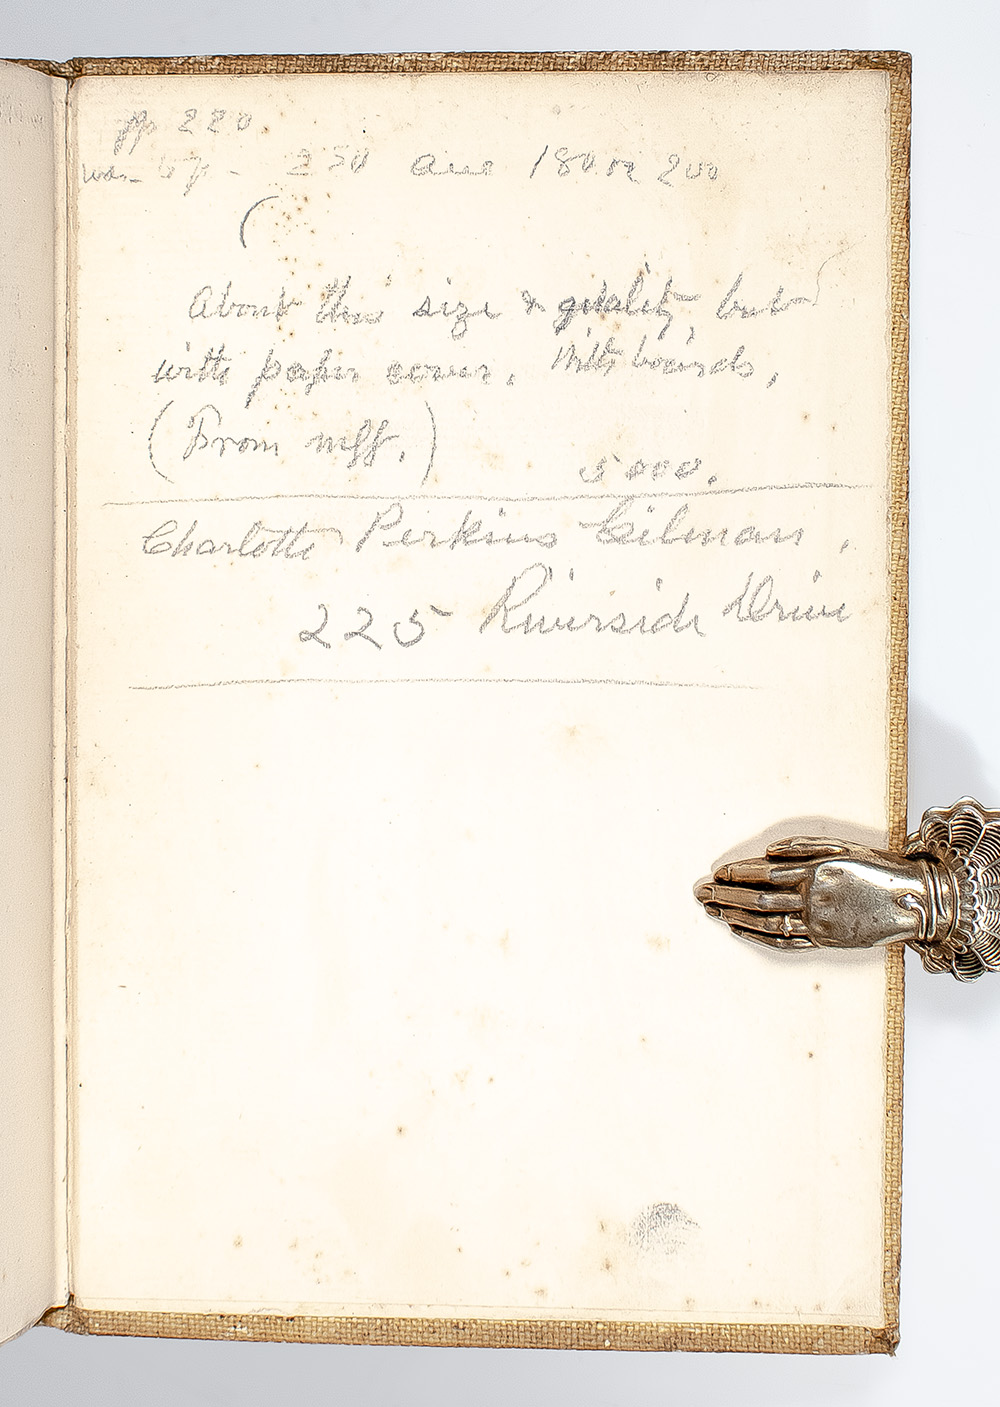 pp 220
250 are 180 or 200
(
About this size & quality, but
with paper cover. With boards,
(From mss.)
5000.
Charlotte Perkins Gilman,
225 Riverside Drive